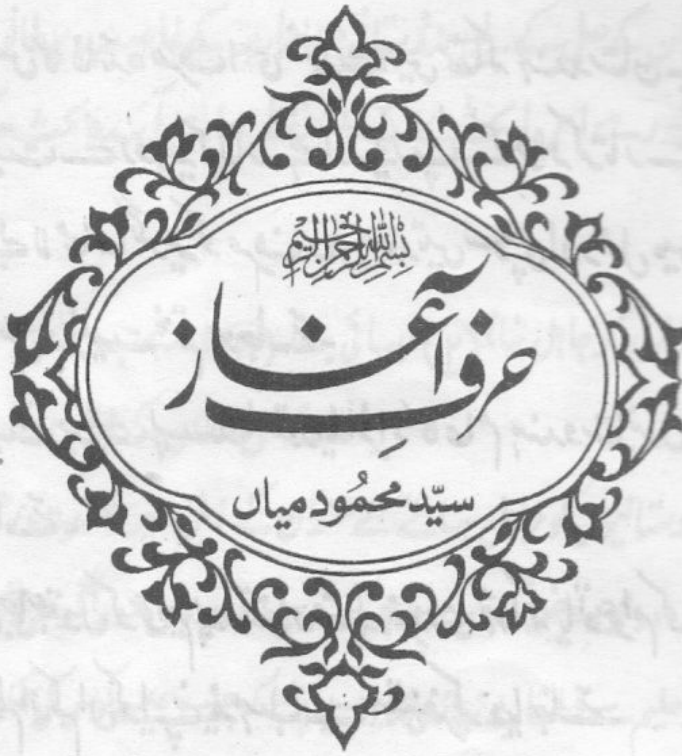 بسم اللہ الرحمٰن الرحیم
حرفِ آغاز
سیّد محمُود میاں